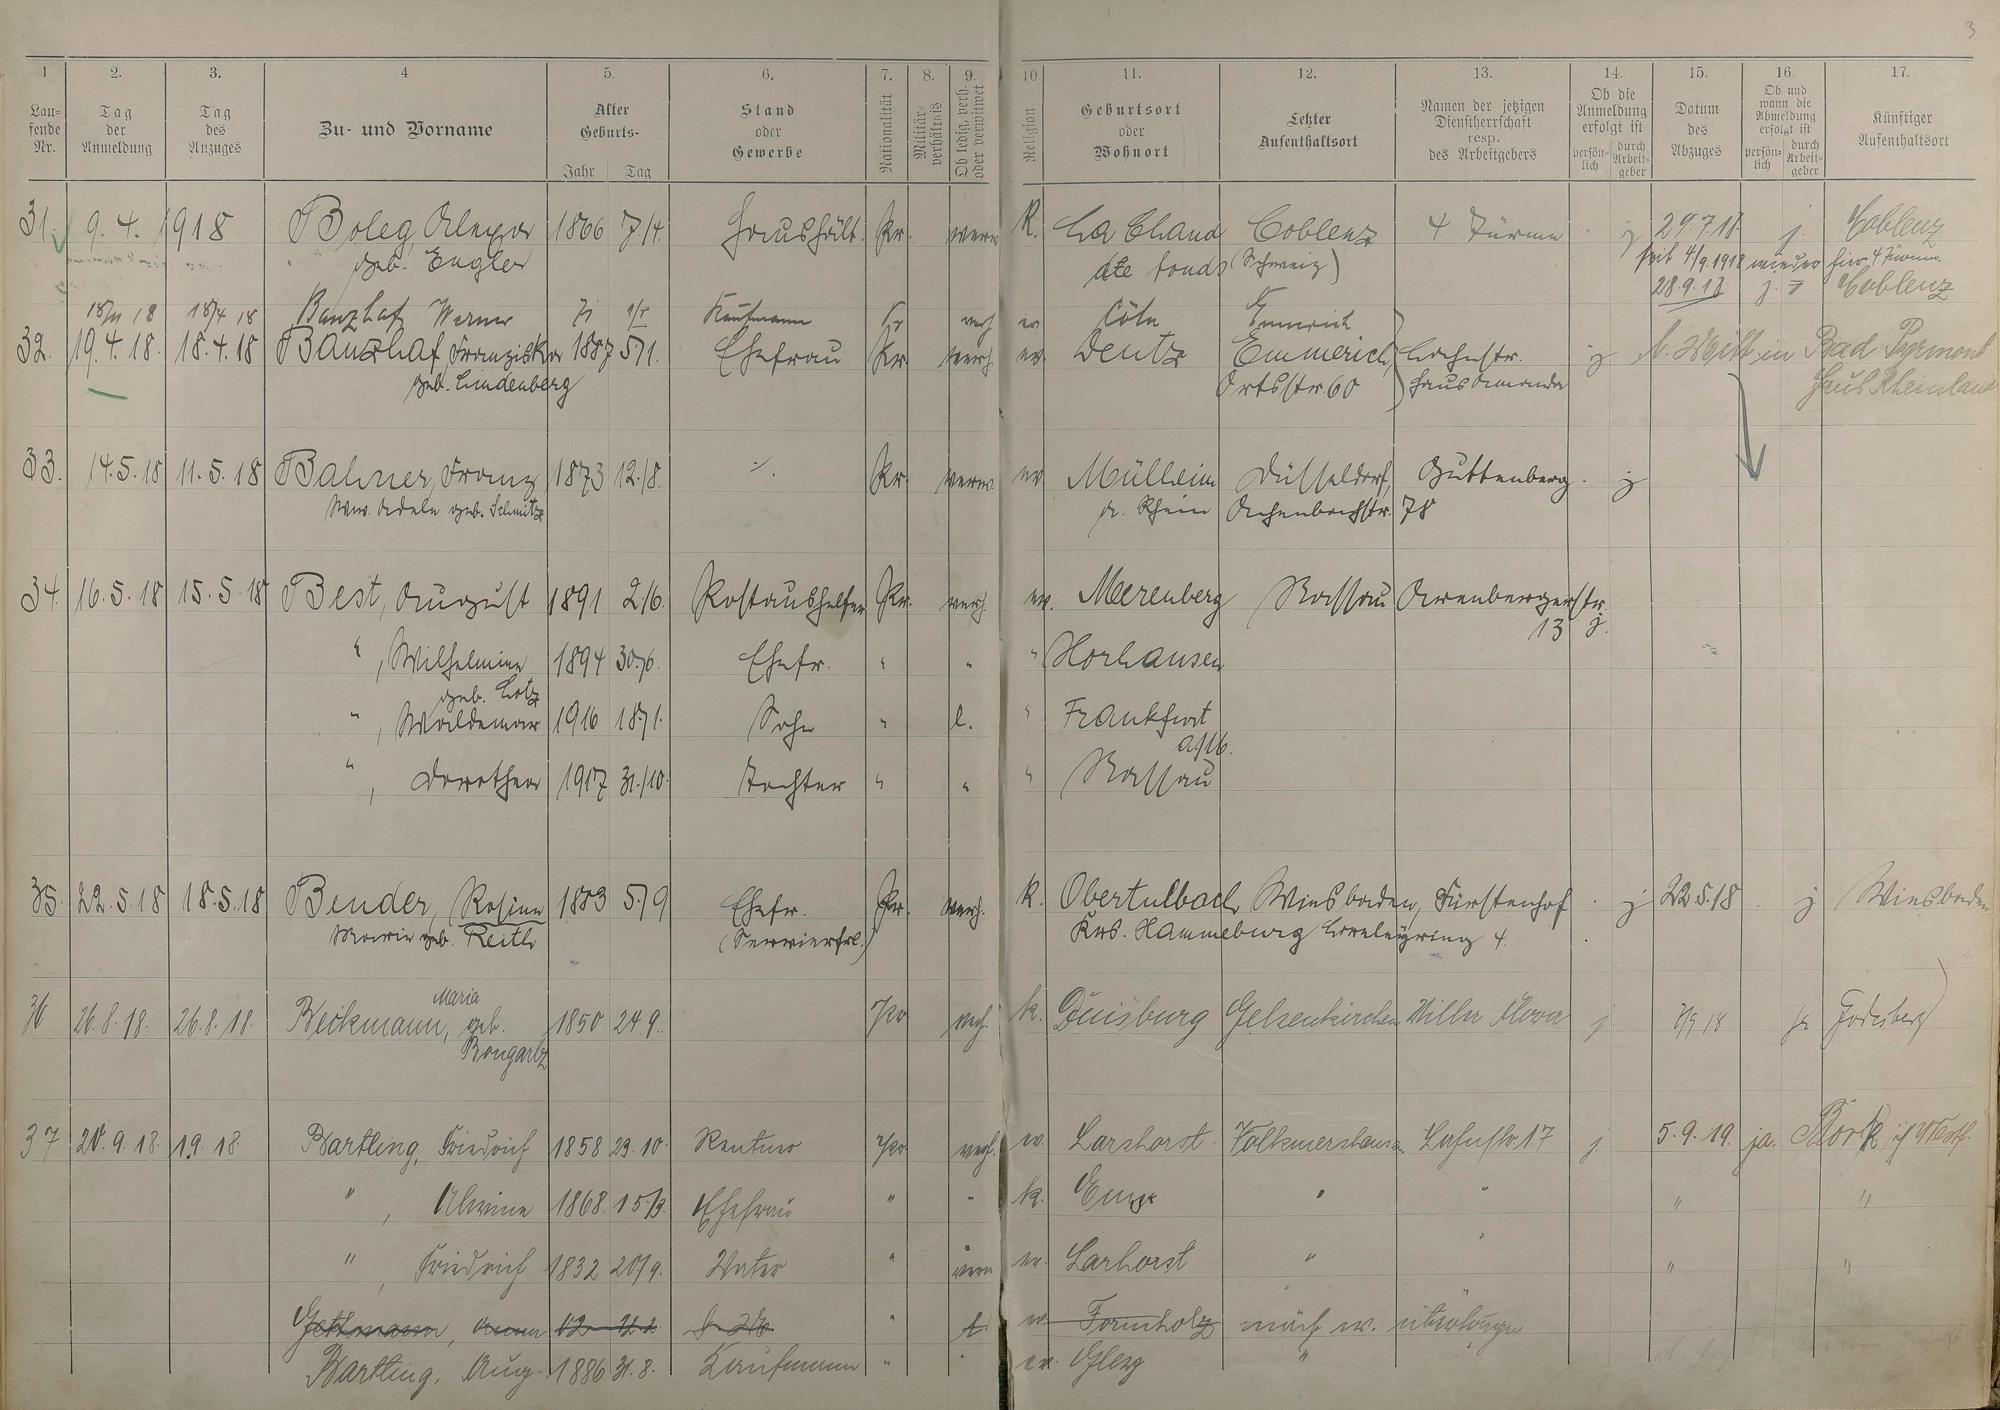 3
1 2. 3. 4 5. 6. 7. 8. 9. 10 11. 12. 13. 14. 15. 16. 17.
Lau-
fende
Nr.
Tag
der
Anmeldung
Tag
des
Anzuges
Zu- und Vorname
Alter
Geburts-
Jahr Tag
Stand
oder
Gewerbe
Nationalität
Militär-
verhältnis
Ob ledig, verh.
oder verwitwet
Religion
Geburtsort
oder
Wohnort
Letzter
Aufenthaltsort
Namen der jetzigen
Dienstherrschaft
resp.
des Arbeitgebers
Ob die
Anmeldung
erfolgt ist
persön-
lich
durch
Arbeit-
geber
Datum
des
Abzuges
Ob und
wann die
Abmeldung
erfolgt ist
persön-
lich
durch
Arbeit-
geber
Künftiger
Aufenthaltsort
31. 9. 4. 1918 Boleg, 1866 7/4. Haushält. Pr. verw. K. La Chaud Coblenz 4 Türme j 29.7.18. j. Coblenz
geb. Engler de fonds (Schweiz) seit 4/9.1918 wieder hier 4 Türme.
28.9.18 j. Coblenz
18/4 18 18/4 18 Banzhaf Werner Kaufmann Pr verh ev Cöln Emmerich
32. 19.4.18. 18.4.18 Banzhaf, Franziska 1887 5/1. Ehefrau Pr. verh. ev. Deutz Emmerich, Lahnstr. j in Bad Pyrmont
geb. Lindenberg Ortsstr. 60 Haus Amanda Haus Rheinland
33. 14.5.18 11.5.18 Bahner, Franz 1873 12./8. ./. Pr. verw. ev. Mülheim Düsseldorf, Guttenberg. j
Wwe. Adele geb. Schmitz a. Rhein Achenbachstr. 78
34 16.5.18 15.5.18 Best, August 1891 2/6. Postaushelfer Pr. verh. ev. Merenberg Nassau Arenbergerstr.
13 j.
" , Wilhelmine 1894 30./6. Ehefr. " " " Horhausen
geb. Lotz
" , Waldemar 1916 18/1. Sohn " l. " Frankfurt
a/M.
" , Dorothea 1917 31./10. Tochter " " " Nassau
35. 22.5.18 18.5.18 Bender, Rosine 1883 5./9 Ehefr. Pr. verh. K. Obertulbach Wiesbaden, Fürstenhof j 22.5.18 j Wiesbaden
Marie geb. Reith (Servierfrl.) Krs. Hammelburg Loreleyring 4.
Maria
36 26.8.18. 26.8.18. Beikmann, geb. 1850 24.9. Pr verh. k. Duisburg Gelsenkirchen Villa Flora j 7/9 18 ja Godesberg
Bongartz
37 20.9.18. 1.9.18. Bartling, Friedrich 1858 29.10. Rentner Pr. verh. ev. Larshorst Volkmershausen Lahnstr. 17 j. 5.9.19. ja. Bork i/Westf.
" , Alwine 1868. 15./3. Ehefrau " " k. Emge " " " "
" , Friedrich 1832 20/9. Vater " verw ev. Larhorst " " " "
Gethmann, Anna 02 " ev. Formholz
Bartling, Aug. 1886 31.8. Kaufmann " ev. "